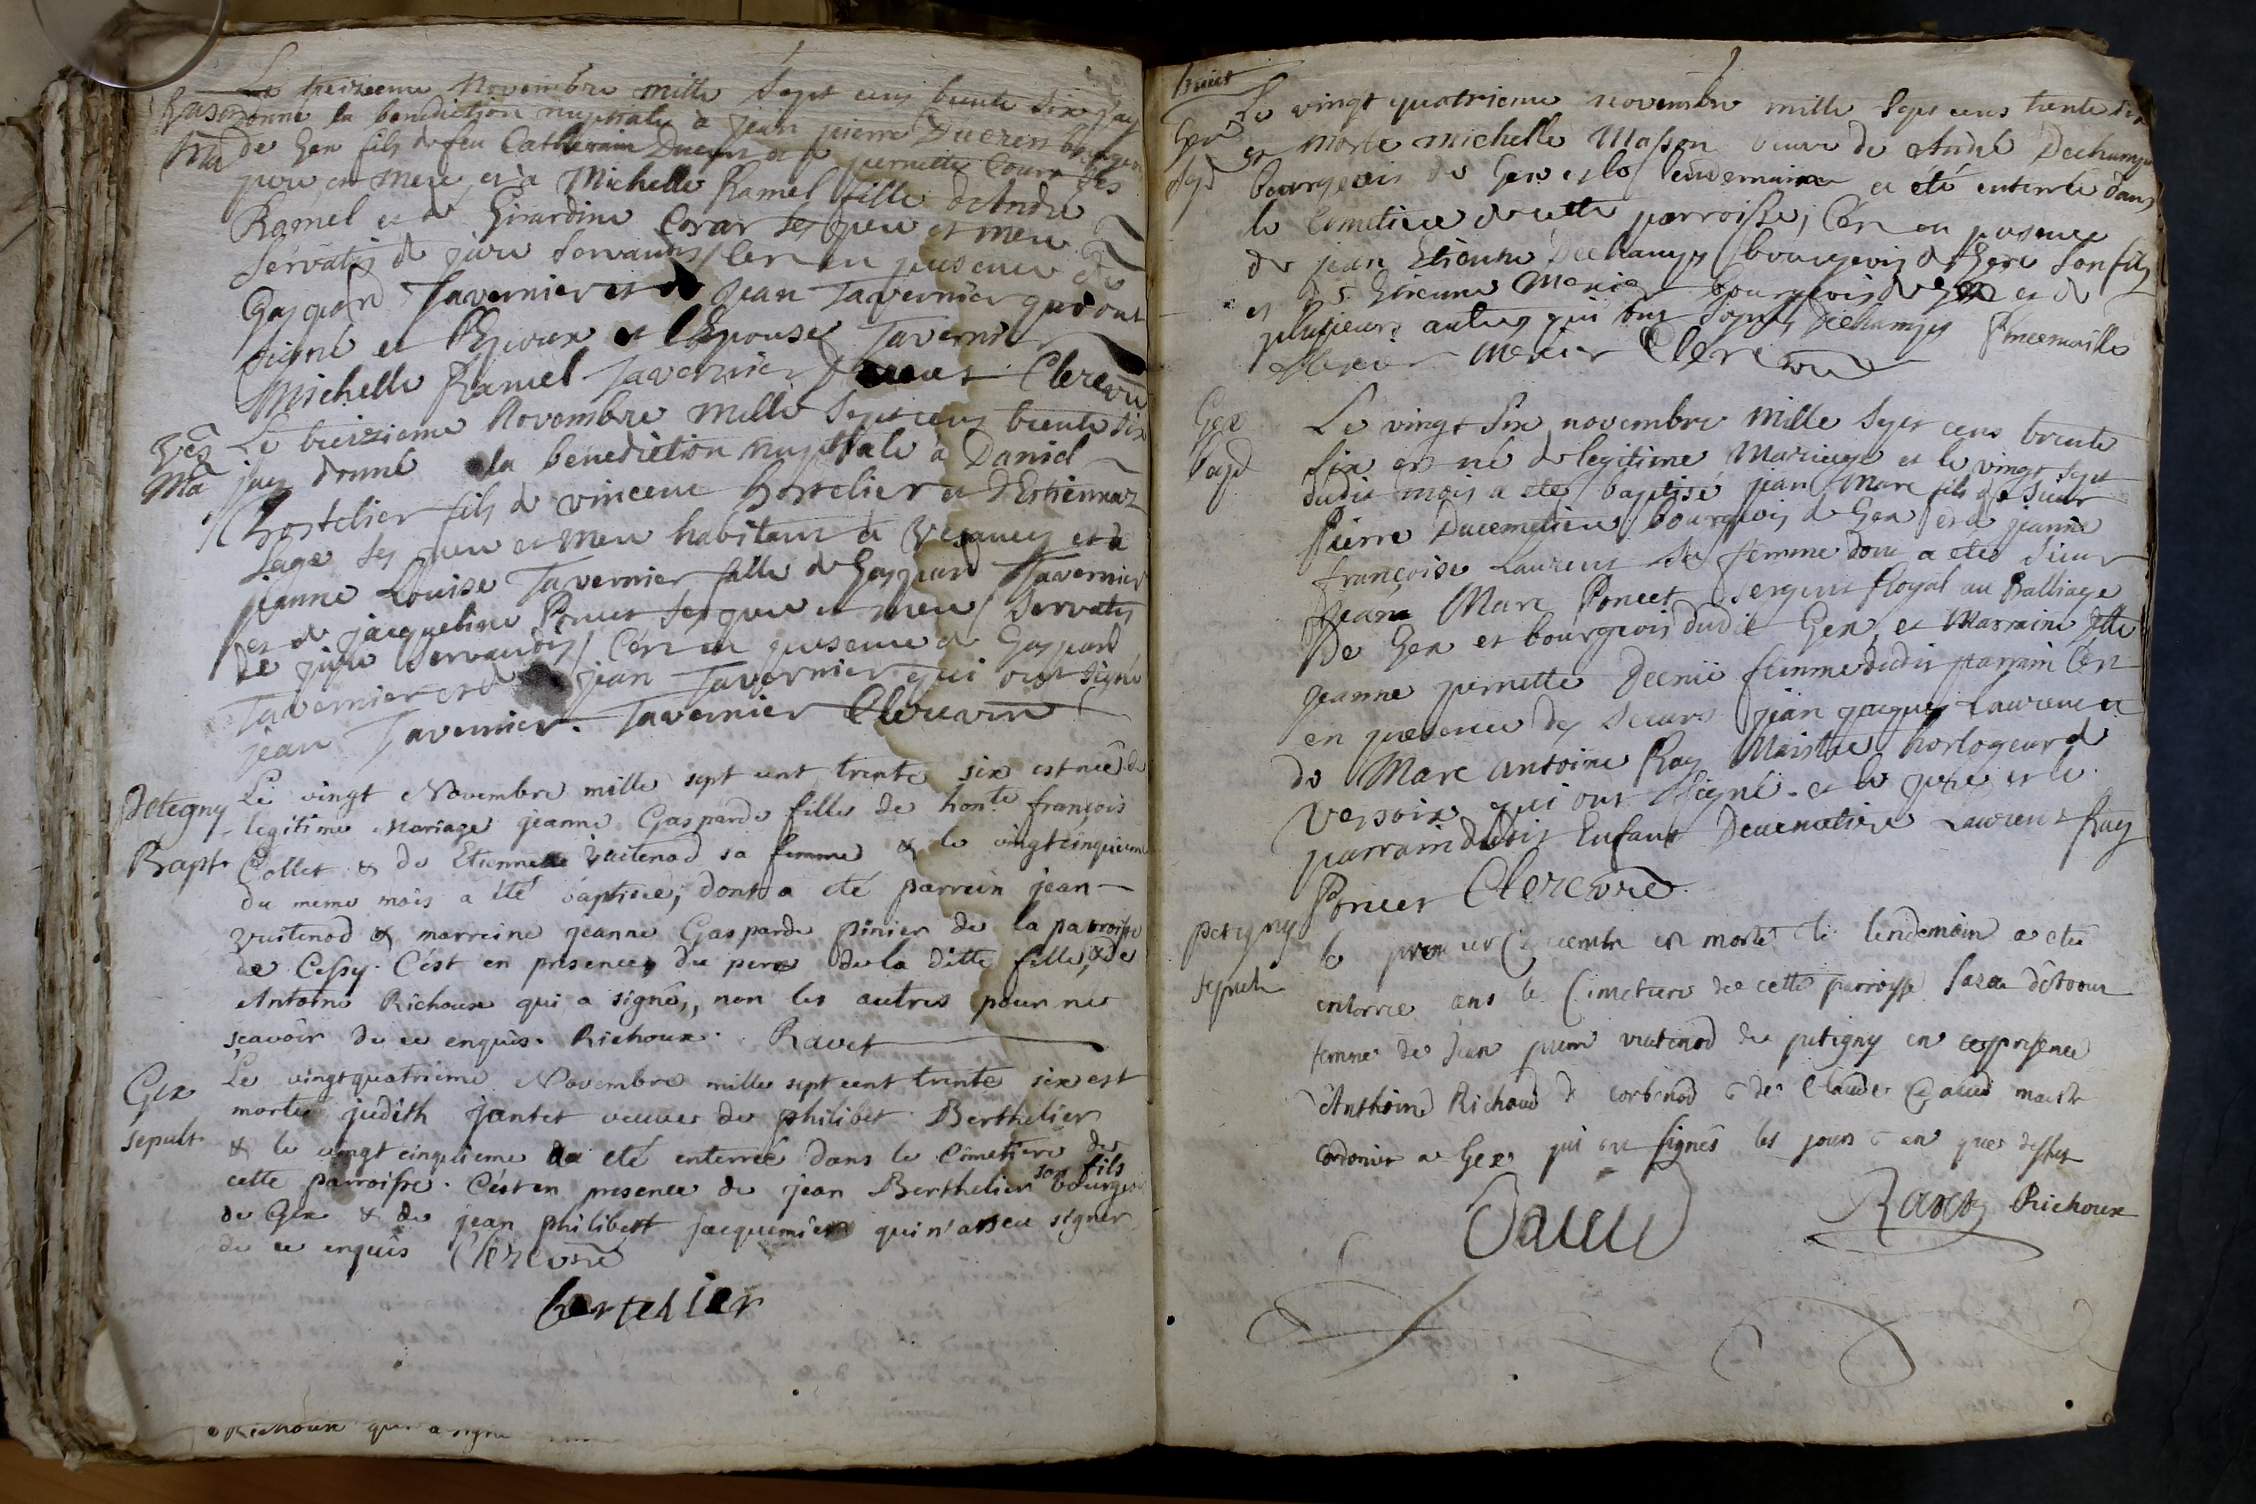 Le treizieme Novembre mille sept cens trente six j'ay
donné la benediction nuptiale à jean pierre Ducrest bourgeois
Mã
de Gex fils de feu Catherin Ducrest et de pernette Court ses
pere et mere et à Michelle Ramel fille d'André
Ramel et de Girardine Corar ses pere et mere
servatis de jure servandis / C'est en presence de
Gaspard Tavernier et de jean Tavernier qui ont
signé et l'Epoux et l'Epouse Tavernier
Michelle Ramel Tavernier Ducrest Clerc vre
Ves
Mã
Le treizieme Novembre mille sept cens trente six
jay donné la benediction nuptiale à Daniel
hostelier fils de vincent hostelier et d'Estiennaz
Lage ses pere et mere habitant à Vesancy et à
jeanne Louise Tavernier fille de Gaspard Tavernier
et de jacqueline Poncet ses pere et mere / servatis
de jure servandis / C'est en presence de Gaspard
Tavernier et de jean Tavernier qui ont signé
jean Tavernier. Tavernier Clerc vre
Petegny
Bapt.
Le vingt Novembre mille sept cent trente six est née de
legitime Mariage jeanne Gasparde fille de honte françois
Collet & de Etiennette vuitenod sa femme & le vingtcinquieme
du meme mois a été baptisée; dont a eté parrein jean
vuitenod & marreine jeanne Gasparde pinier de la parroisse
de Cessy. C'est en presence, du pere de la ditte fille, & de
Antoine Richoux qui a signé, non les autres pour ne
sçavoir de ce enquis. Richoux. Ravet
Gex
sepult.
Le vingtquatrieme Novembre mille sept cent trente six est
morte judith jantet veuve de philibet Berthelier
& le vingt cinquieme a eté enterrée dans le Cimetiere de
cette parroisse. C'est en presence de jean Berthelier son fils bourgeois
de Gex & de jean philibert jacquemier qui n'a sceu signer
de ce enquis Clerc vre
bertelier
Richoux qui a signé
huict
Gex
Le vingt quatrieme novembre mille sept cens trente six
est morte Michelle Masson veuve de André Dechamps
bourgeois de Gex et le lendemain a été enterrée dans
le Cimetiere de cette parroisse, C'est en presence
de jean Etienne Dechamps bourgeois de Gex son fils
et de Sr Etienne Mercier bourgeois de Gex et de
plusieurs autres qui ont signés Dechamps
Mercier Clerc vre
Gex
bapt
Le vingt six novembre mille sept cens trente
six est né de legitime Mariage et le vingt sept
dudit mois a eté baptisé jean Marc fils de sieur
Pierre Ducemetiere bourgeois de Gex et de jeanne
françoise Laurent sa femme dont a eté sieur
jean Marc Poncet sergent Royal au Balliage
De Gex et bourgeois dudit Gex, et Marraine Dlle
jeanne pernette Decrie femme dudit parrain C'est
en presence des sieurs jean jacques Laurent et
de Marc Antoine Ray Maistre horlogeur de
Versoix qui ont signé et le pere et le
parrain dudit Enfant Ducemetiere Laurent Ray
Poncet Clerc vre
petigny
sepult
le premier Decembre est morte & le lendemain a eté
enterrée ans le Cimetiere de cette parroisse
femme de Jean pierre vuitenod de petigny en
Anthoine Richoud de corbenod & de Claude maistre
Cordonier a Gex qui ont signés les jours & an que dessus
Ravet Richoux